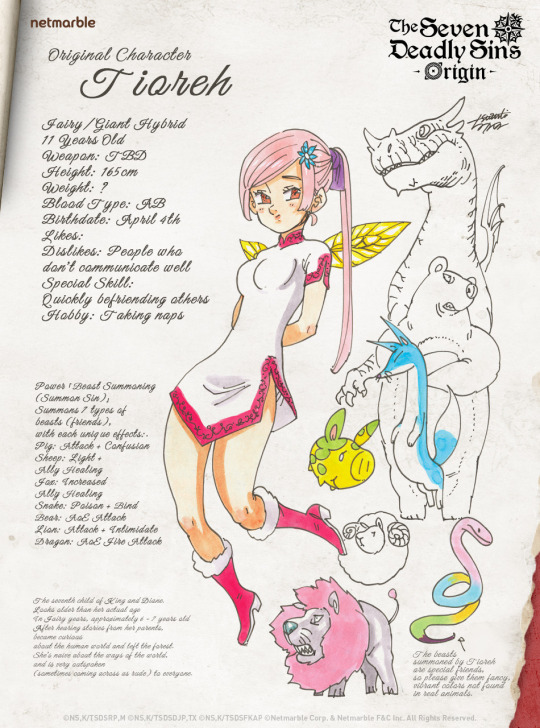 netmarble
The Seven
Deadly Sins
Origin
Original Character
Tioreh
Fairy/Giant Hybrid
11 Years Old
Weapon: TBD
Height: 165cm
Weight: ?
Blood Type: AB
Birthdate: April 4th
Likes:
Dislikes: People who
don't communicate well
Special Skill:
Quickly befriending others
Hobby: Taking naps
Power「Beast Summoning
(Summon Sin)」
Summons 7 types of
beasts (friends),
with each unique effects:.
Pig: Attack + Confusion
Sheep: Light +
Ally Healing
Fox: Increased
Ally Healing
Snake: Poison + Bind
Bear: AoE Attack
Lion: Attack + Intimidate
Dragon: AoE Fire Attack
The seventh child of King and Diane.
Looks older than her actual age
In Fairy years, approximately 6 - 7 years old
After hearing stories from her parents,
became curious
about the human world and left the forest.
She's naive about the ways of the world,
and is very outspoken
(sometimes coming across as rude) to everyone.
The beasts
summoned by Tioreh
are special friends,
so please give them fancy,
vibrant colors not found
in real animals.
©NS,K/TSDSRP,M ©NS,K/TSDSDJP,TX ©NS,K/TSDSFKAP ©Netmarble Corp. & Netmarble F&C Inc. All Rights Reserved.